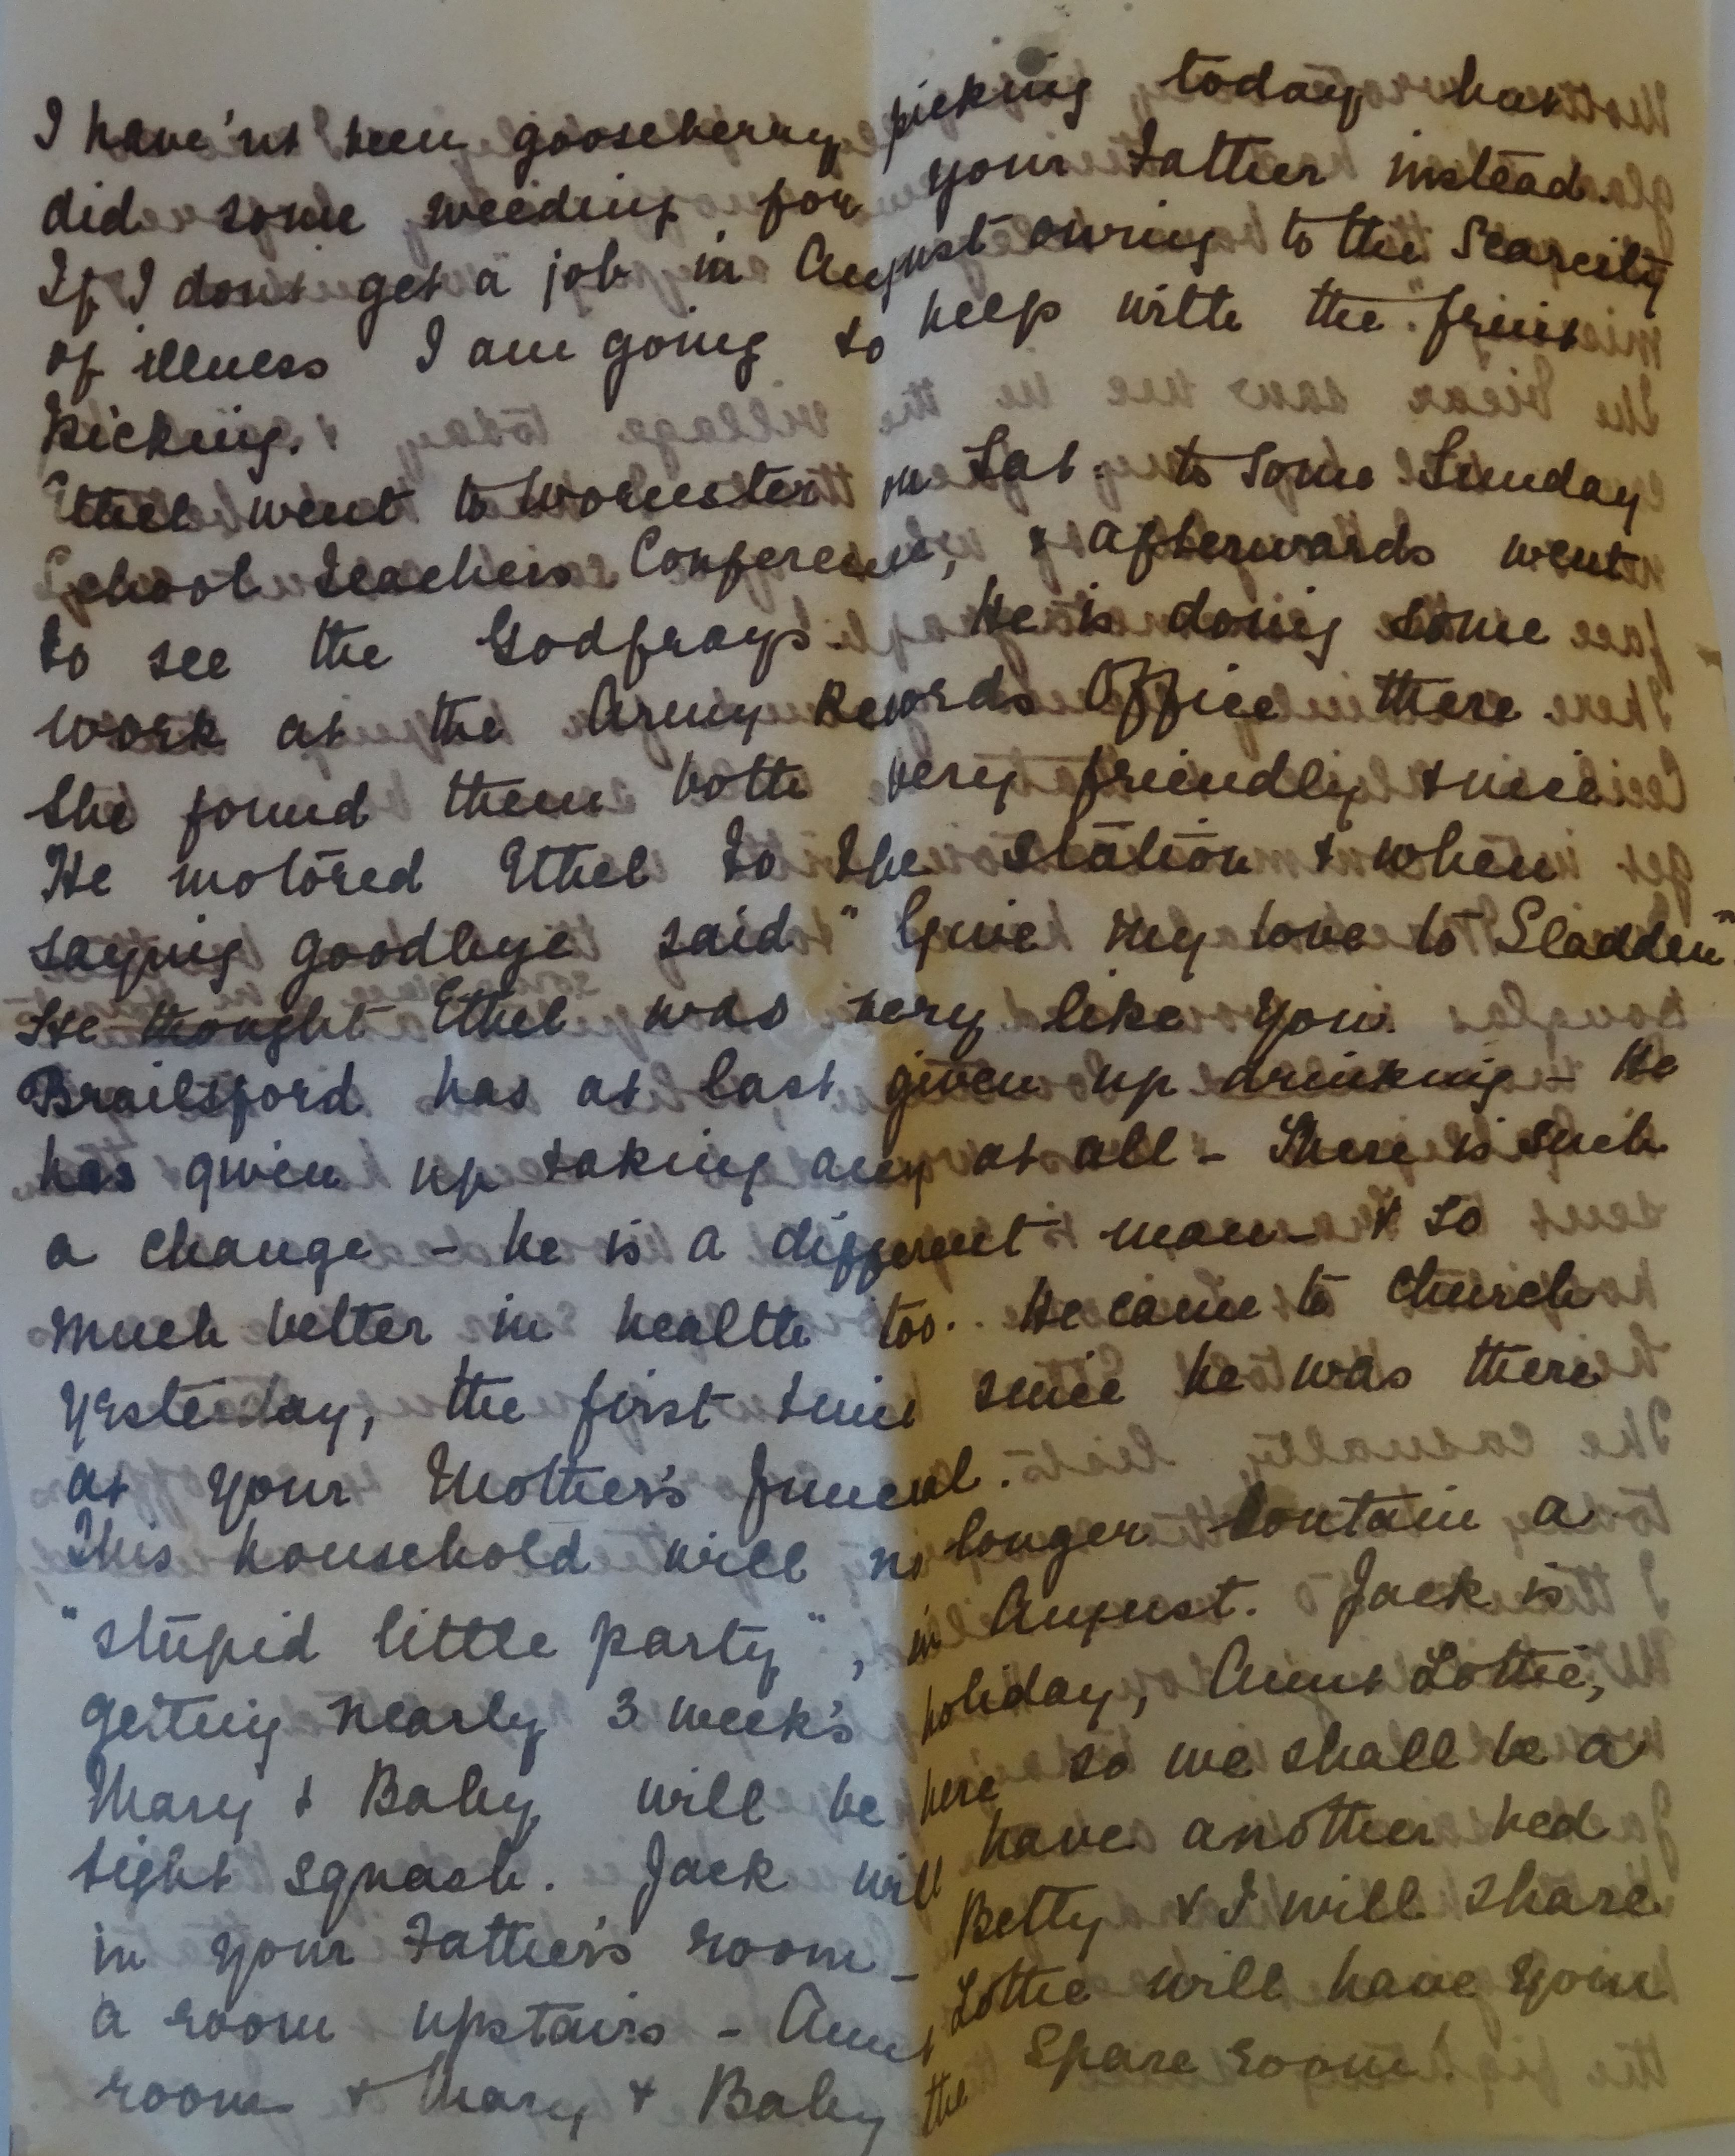 I have'nt been gooseberry picking today but
did some weeding for your Father instead.
If I dont get a job in August owing to the Scarcity
of illness I am going to help with the "fruit
Picking.
Ethel went to Worcester on Sat. to some Sunday
School Teachers Conference, & afterwards went
to see the Godfrays. He is doing some
work at the Army Records Office there.
She found them both very friendly & nice
He motored Ethel to the station & when
saying goodbye said "Give my love to Sladden"
He thought Ethel was very like you.
Brailsford has at last given up drinking - He
has given up taking any at all - There is such
a change - he is a different man - & so
much better in health too. He came to Church
yesterday, the first time since he was there
at your Mother's funeral.
This household will no longer contain a
"stupid little party", in August. Jack is
getting nearly 3 week's holiday, Aunt Lottie,
Mary & Baby will be here so we shall be a
tight squash. Jack will have another bed
in your Father's room - Betty & I will share
a room upstairs - Aunt Lottie will have your
room & Mary & Baby the Spare room!